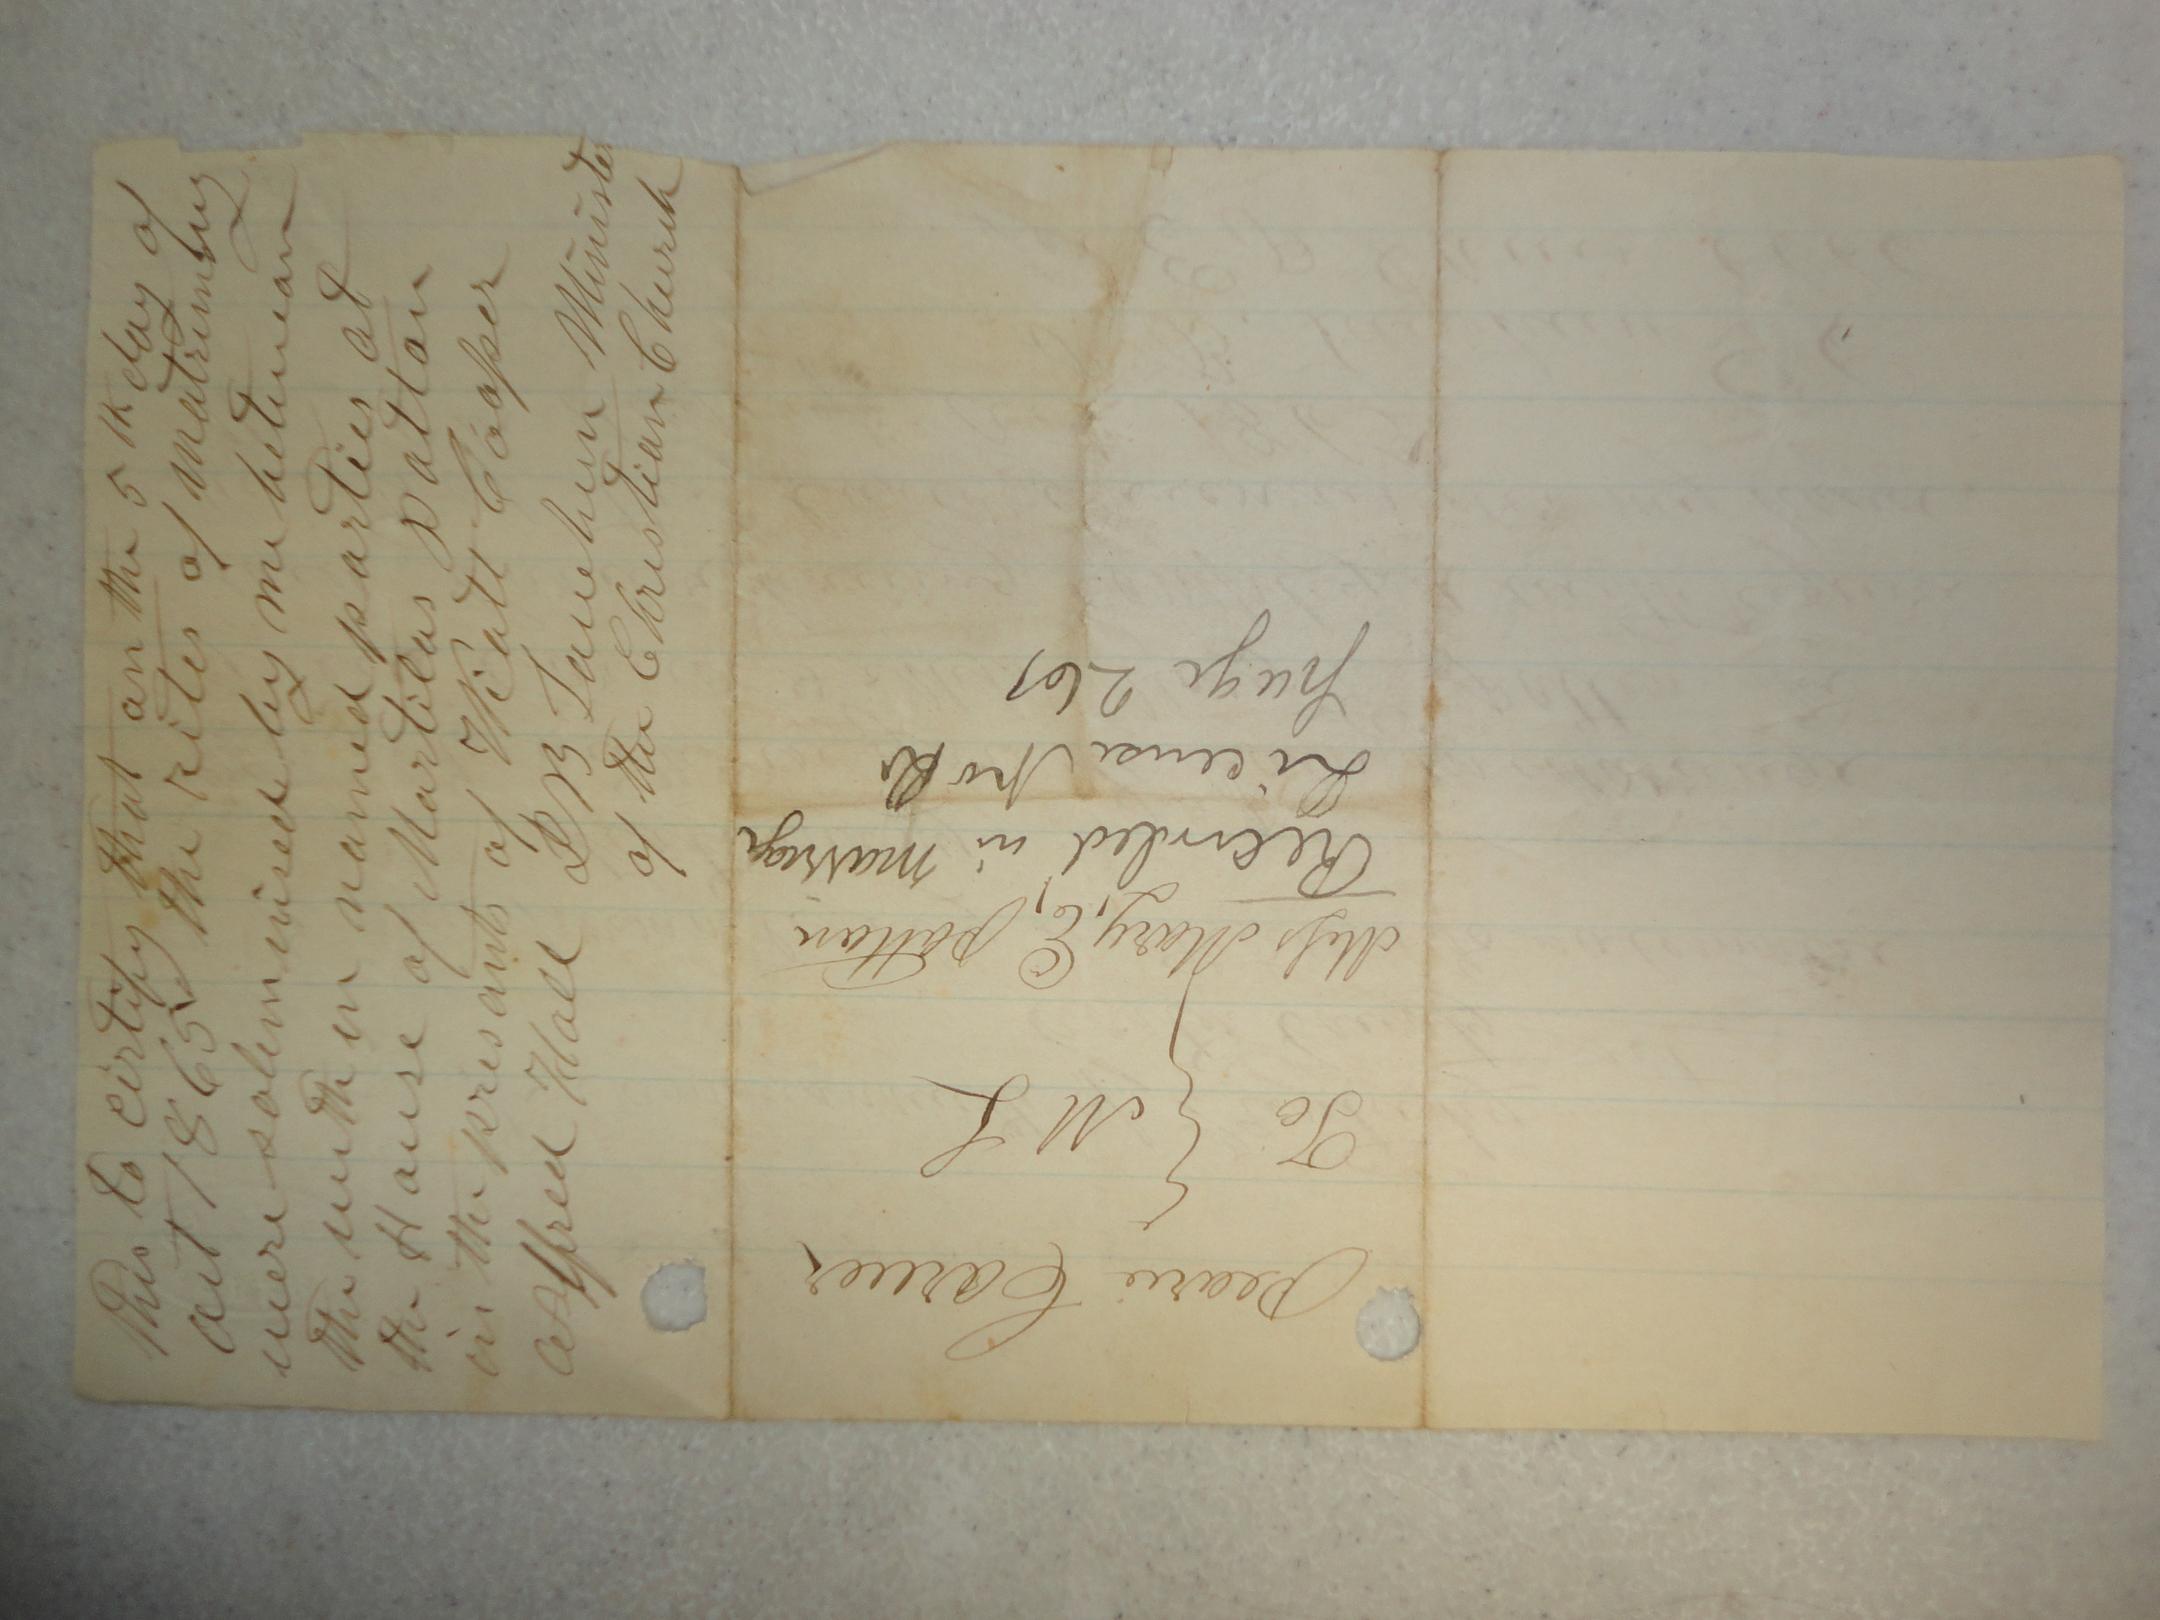 This to cirtify that on the 5th day of
oct 1865 the rites of matrimony
were solemnised by me between
the within named parties at
the House of Martilas patton
in the presants of Wiatt Cooper
Alfred Hall P B Lanehim Minister
of the Christian Church
Carver
To } M L
Miss Mary, E, patton
Recorded in marriage
License No
page 265